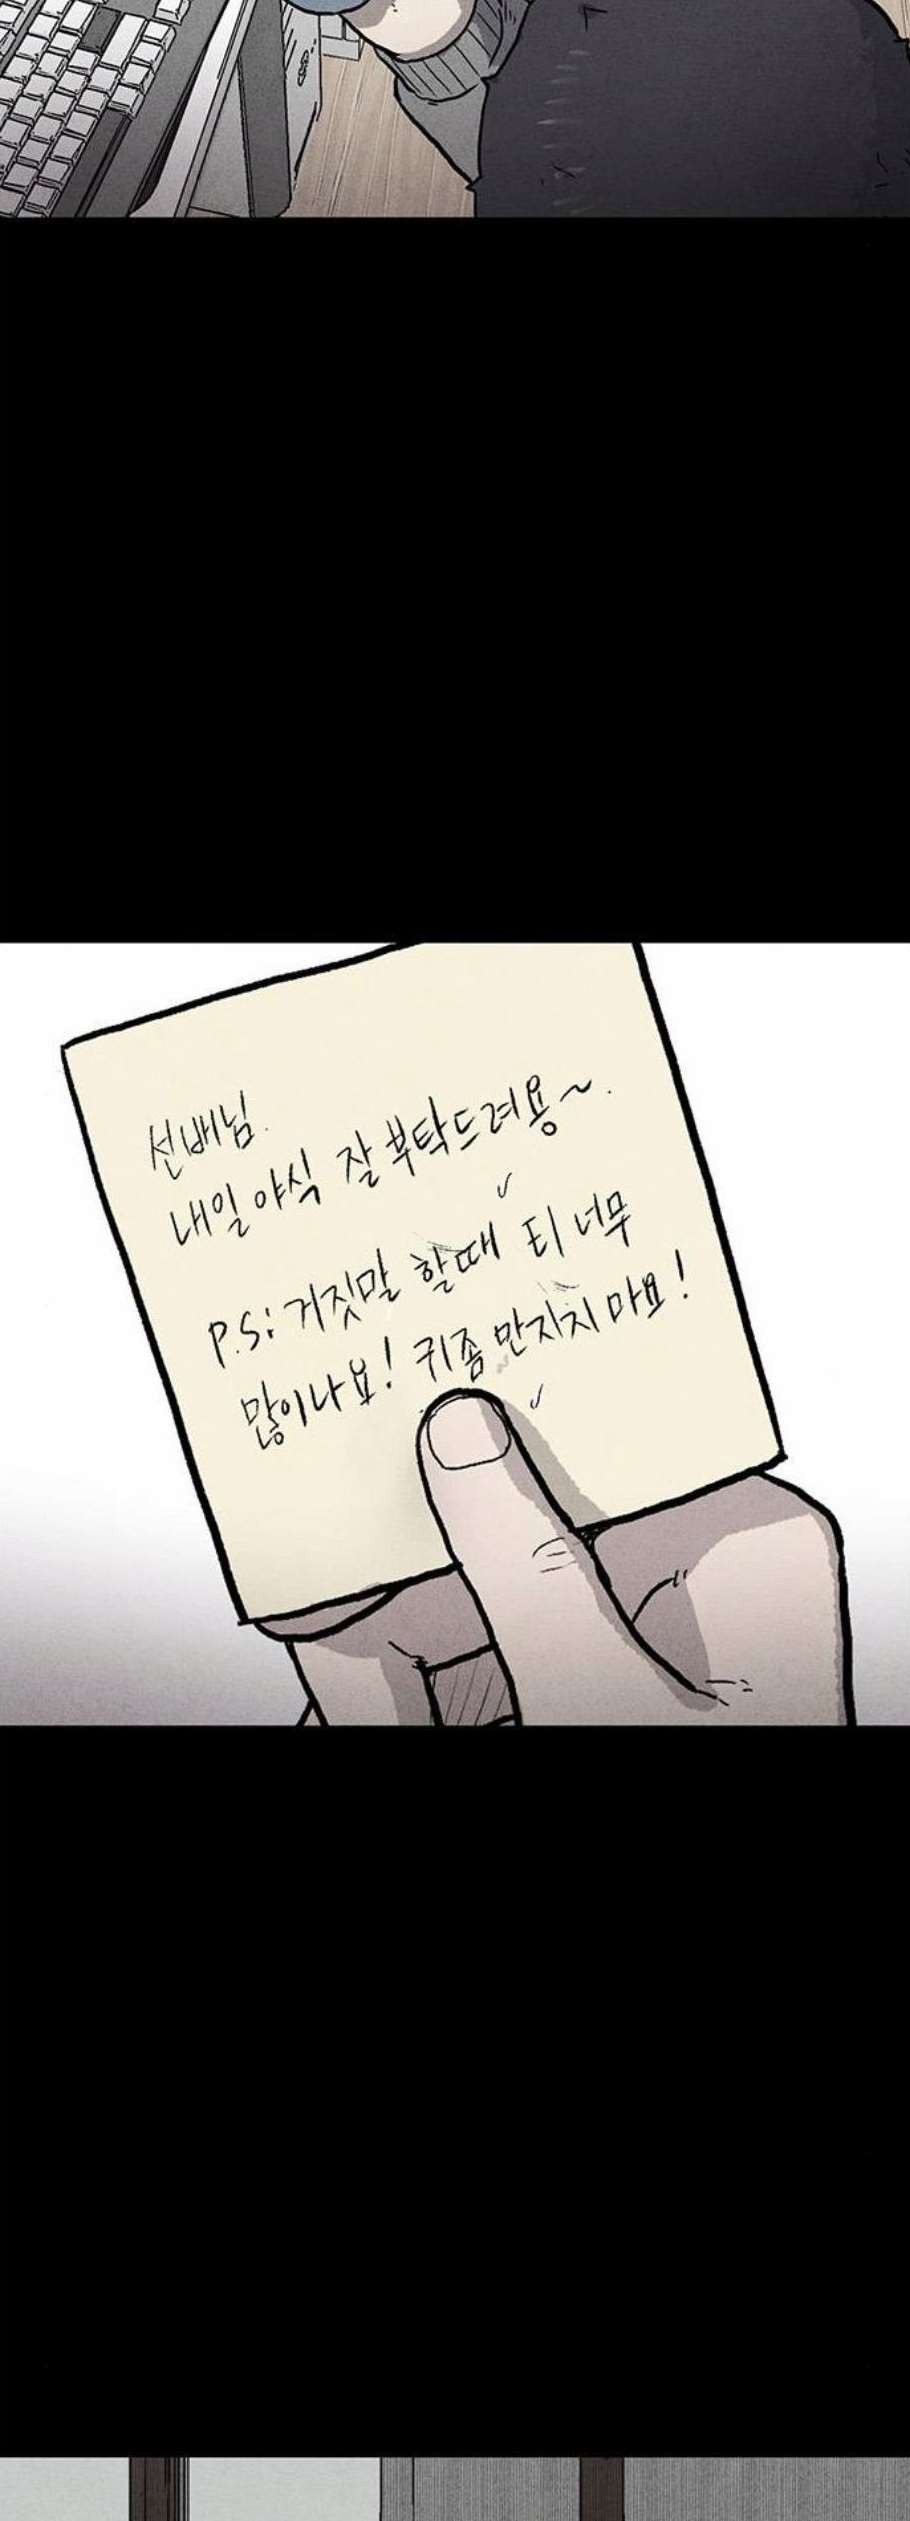 선배님.
내일 야식 잘 부탁드려용~.
P.S: 거짓말 할때 티 너무
많이나요! 귀좀 만지지 마요!